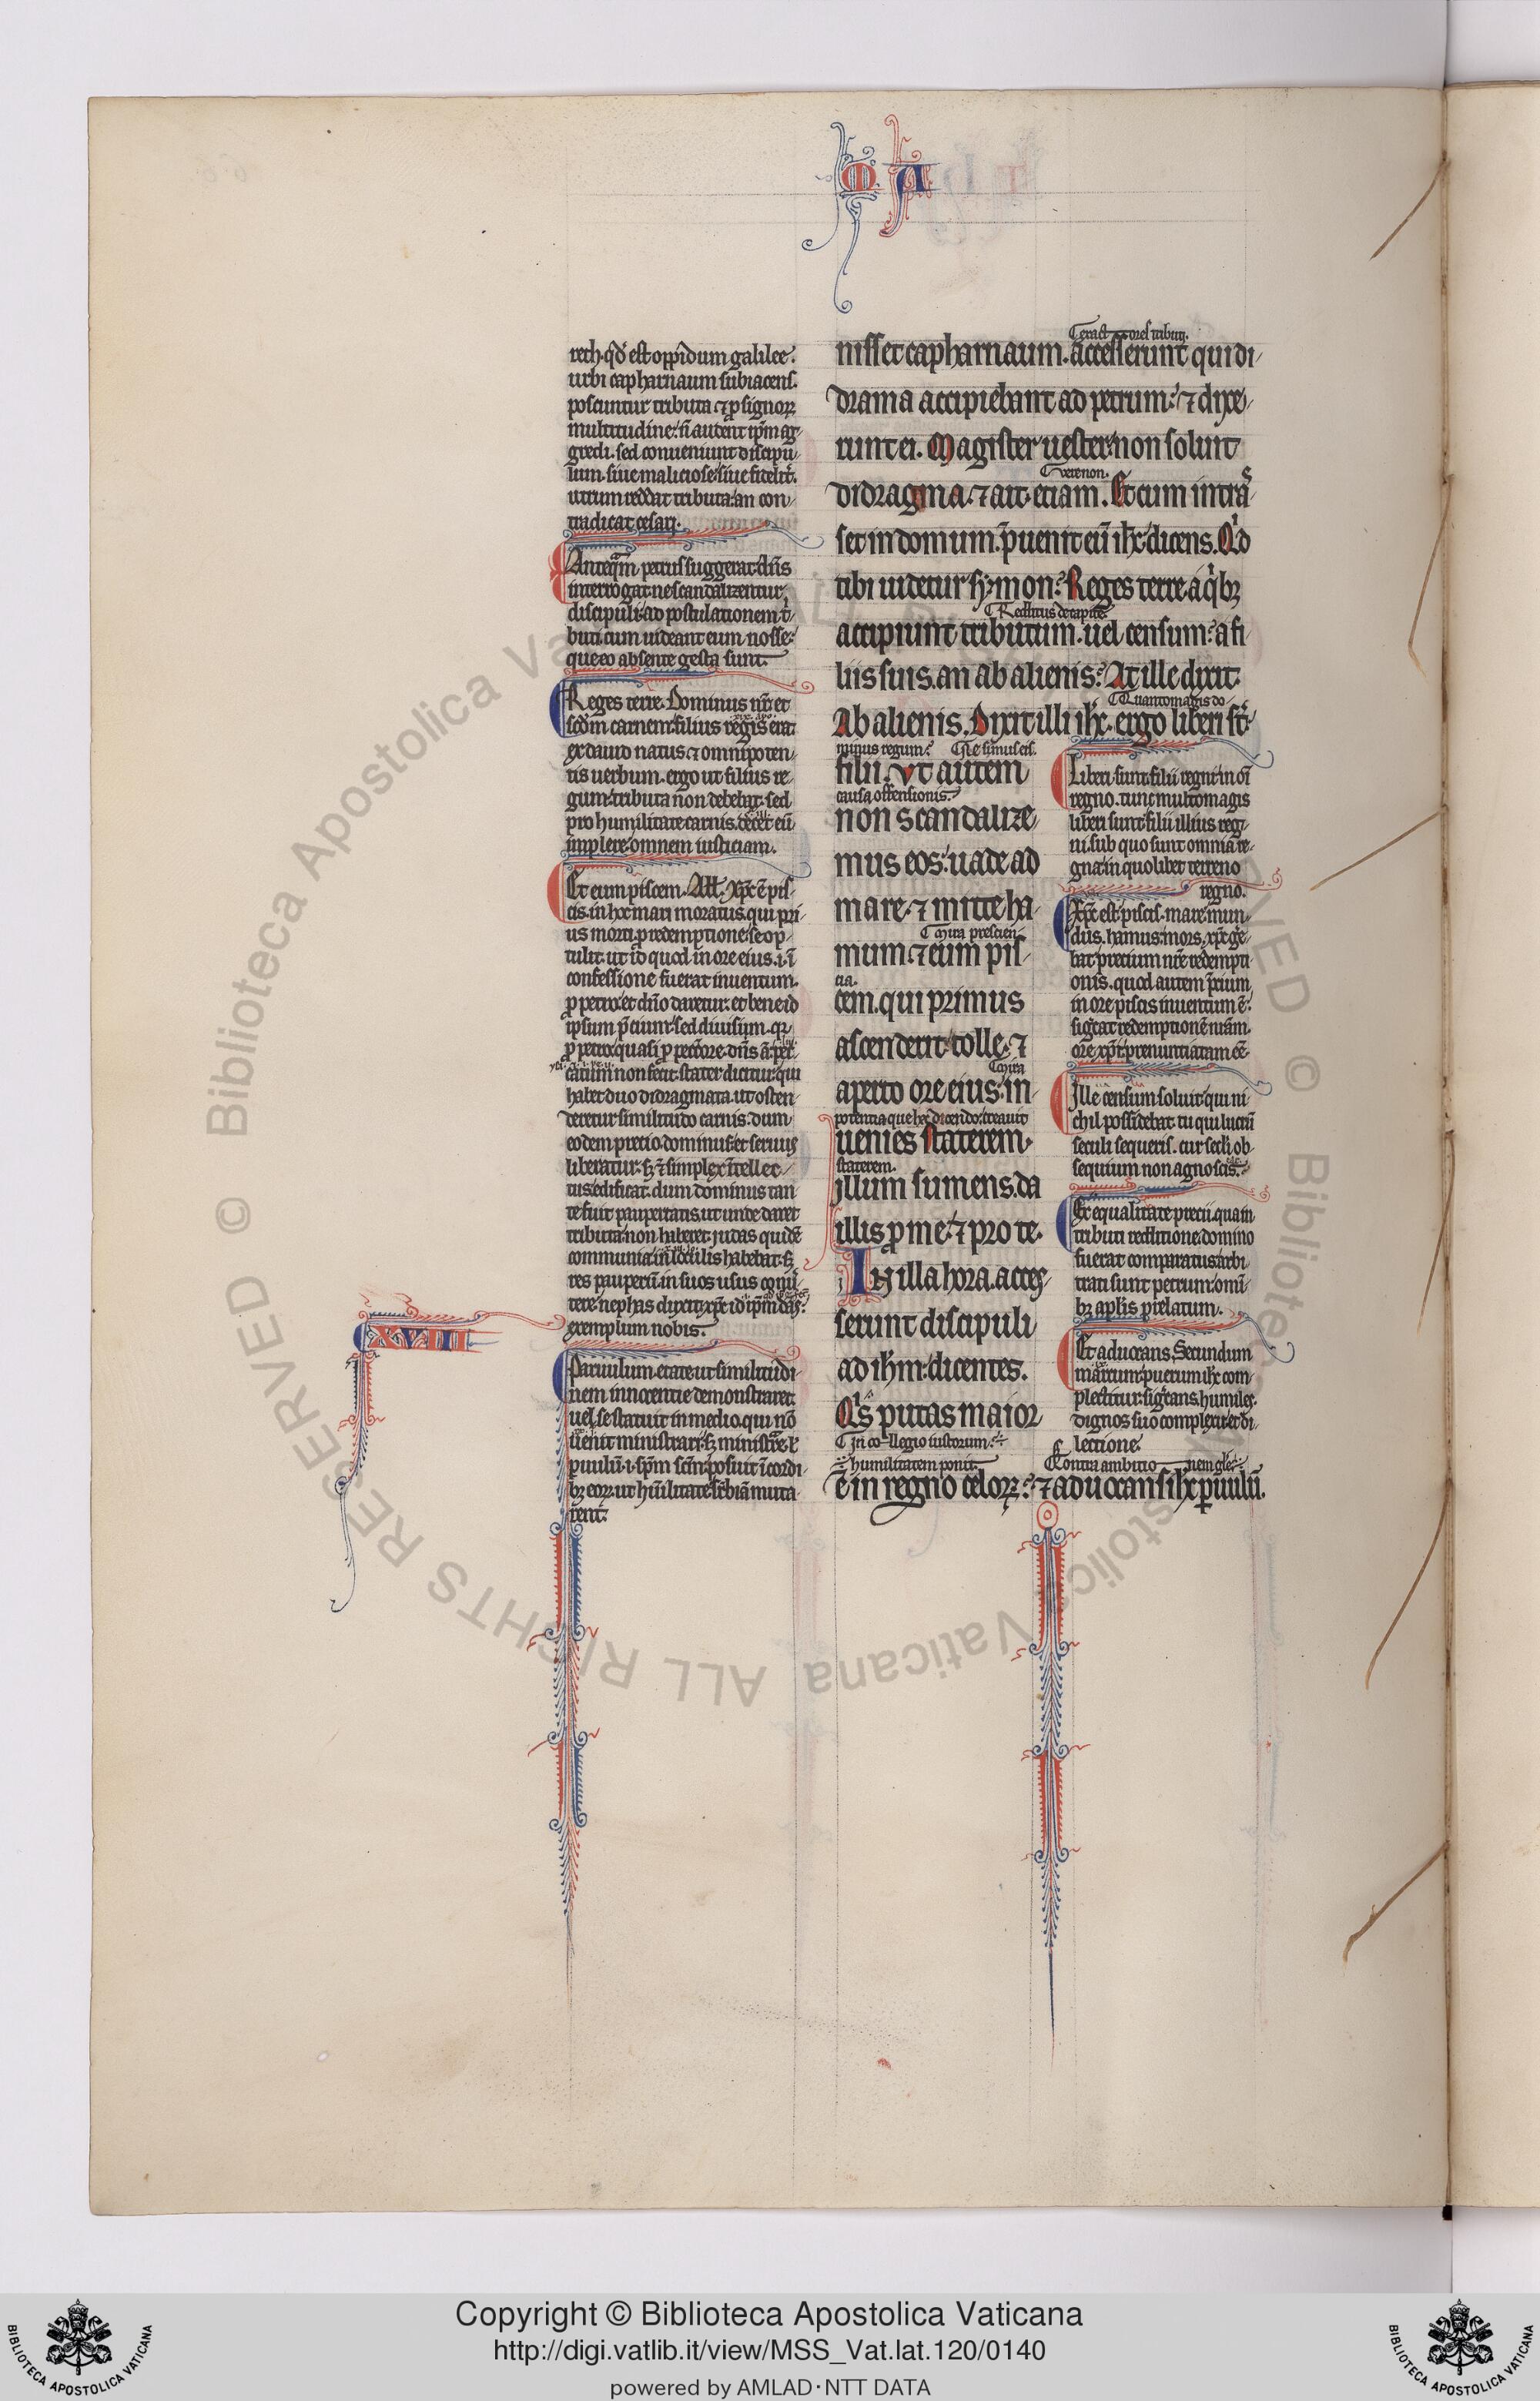 M A
reth. qd' est oppidum galilee.
urbi capharnaum subiacens.
poscuntur tributa ⁊ p signoꝝ
multitudine: ñ audent ip̄m ag
gredi. sed conueniunt discipu
lum. siue maliciose: siue fidelit̄.
utrum reddat tributa: an con
tradicat cesari.
Anteq̄m petrus suggerat: dn̄s
interrogat. ne scandalizentur
discipuli ad postulationem t̓
buti. cum uideant eum nosse:
que eo absente gesta sunt.
Reges terre. Dominus nr̄ et
scd̄m carnem: filius regis erat
ex dauid natus: ⁊ omnipoten
tis uerbum. ergo ut filius re
gum: tributa non debebat. sed
pro humilitate carnis. decet eū
implere omnem iusticiam.
Et eum piscem. All'. xp̄c ē pis
cis. in hoc mari moratus. qui pri
us morti. p redemptione se op
tulit. ut id quod in ore eius .i. ī
confessione fuerat inuentum.
p petro: et dn̄o daretur. et bene id
ipsum p̄cium: sed diuisum. q̄
p petro: quasi p peccatore. dn̄s aū pec
catum non fecit. stater dicitur: qui
habet duo didragmata. ut osten
deretur similitudo carnis: dum
eodem precio dominus: et seruus
liberatur. sꝫ ⁊ simplex ītellec
tus edificat. dum dominus tan
te fuit paupertatis. ut unde daret
tributa: non haberet. iudas quidē
communia in loculis habebat: sꝫ
res pauperū in suos usus conu̓
tere: nephas dixit. xp̄c id ip̄m dās
exemplum nobis.
XVIII
Paruulum. etate ut similitudi
nem innocentie demonstraret.
uel se statuit in medio. qui nō
uenit ministrari: sꝫ ministrare. l'
puulū .i. sp̄m scm̄: posuit ī cordi
bꝫ eoꝝ. ut hūilitate supbiā muta
rent.
exactores tributi.
nisset capharnaum. accesserunt qui di
drama accipiebant ad petrum: ⁊ dixe
runt ei. Magister uester: non soluit
vere non.
didragma. ⁊ ait: etiam. Et cum intras
set in domum. p̄uenit eū ih̄c: dicens. Qd
tibi uidetur symon? Reges terre: a qⁱbꝫ
Redditus de capite.
accipiunt tributum. uel censum? a fi
liis suis. an ab alienis? At ille dixit.
Quanto magis do
Ab alienis. Dixit illi ih̄c. ergo liberi sūt
minus regum? Ne simus eis
filii. Vt autem
causa offensionis.
non scandalize
mus eos: uade ad
mare: ⁊ mitte ha
mira prescien
mum. ⁊ eum pis
cia.
cem. qui primus
ascenderit: tolle. ⁊
mira
aperto ore eius: in
potentia que hoc dicendo: creauit
uenies staterem.
staterem.
illum sumens. da
illis p me: ⁊ pro te.
In illa hora. acces
serunt discipuli
ad ih̄m: dicentes.
Qⁱs putas maior
In collegio iustorum.
humilitatem ponit. Contra ambitionem glorie
ē in regno celoꝝ? ⁊ aduocans ih̄c puulū.
Liberi sunt filii regni in oī
regno. tunc multo magis
liberi sunt filii illius reg
ni. sub quo sunt omnia re
gna: in quolibet terreno
regno.
Xp̄c est piscis. mare mun
dus. hamus: mors. xp̄c ge
bat precium nr̄e redempti
onis. quod autem p̄cium
in ore piscis inuentum ē:
sig̓cat redemptionē nr̄am.
ore xp̄i: prenuntiatam eē.
Ille censum soluit: qui ni
chil possidebat. tu qui lucrū
seculi sequeris. cur seculi ob
sequium non agnoscis?
Ex equalitate precii. quam
tributi redditione domino
fuerat comparatus: arbi
trati sunt petrum: omī
bꝫ aplis prelatum.
Et aduocans. Secundum
marcum: puerum ih̄c com
plectitur. sig̓cans. humiles.
dignos suo complexu: et di
lectione.
Copyright © Biblioteca Apostolica Vaticana
http://digi.vatlib.it/view/MSS_Vat.lat.120/0140
powered by AMLAD·NTT DATA
BIBLIOTECA APOSTOLICA VATICANA
BIBLIOTECA APOSTOLICA VATICANA
© Biblioteca Apostolica Vaticana ALL RIGHTS RESERVED © Biblioteca Apostolica Vaticana ALL RIGHTS RESERVED